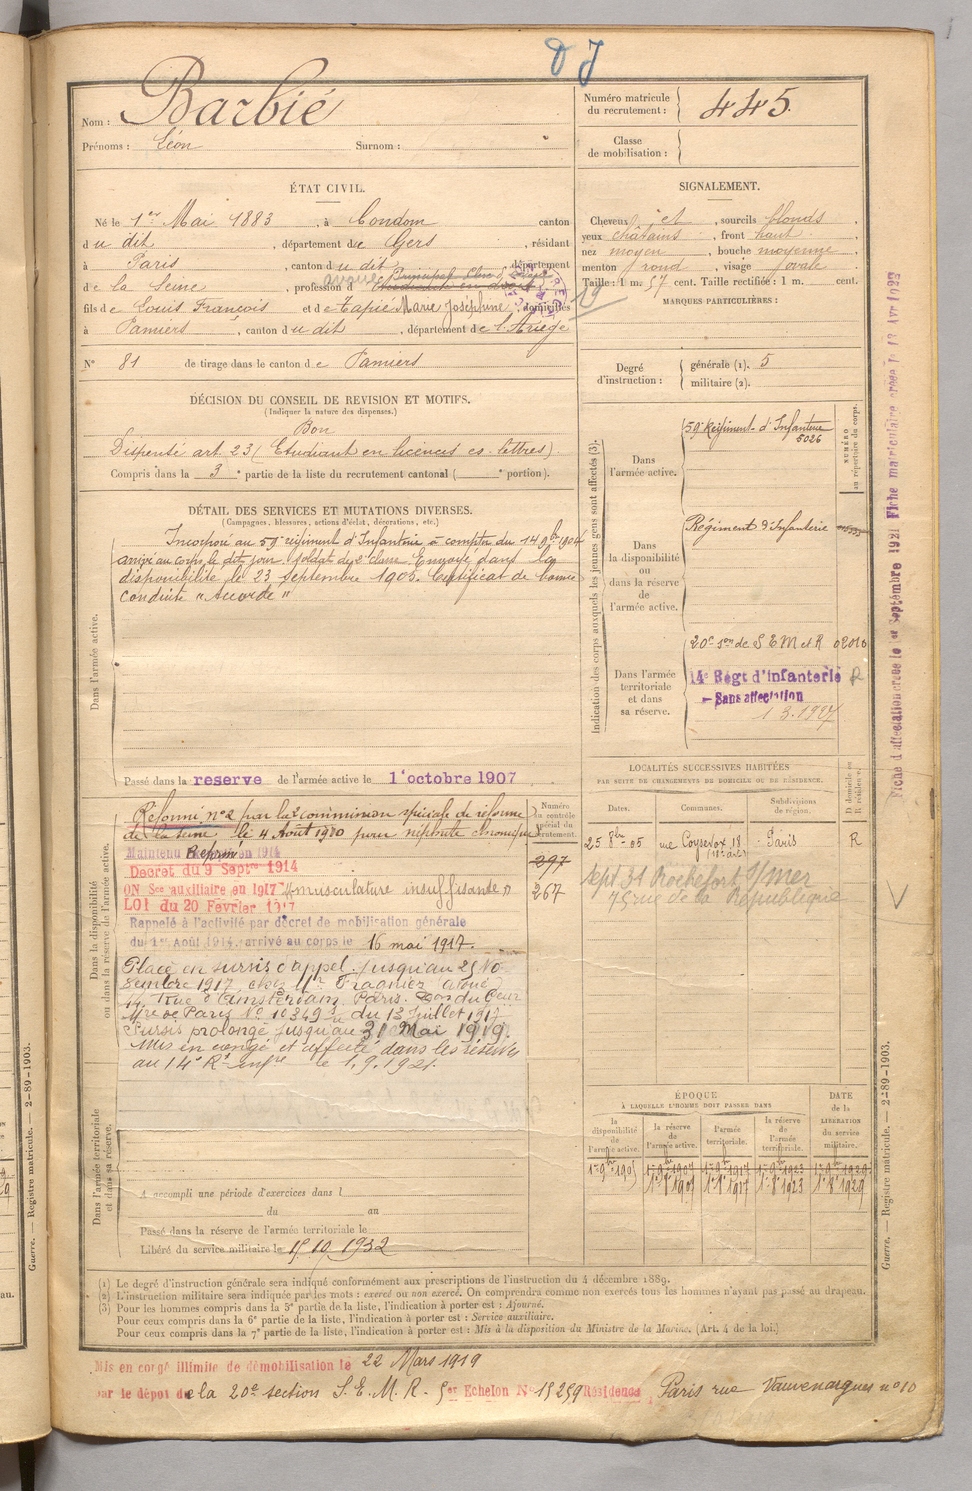 DJ
Nom : Barbié
Prénoms : Léon Surnom :
Numéro matricule du recrutement : 445
Classe de mobilisation :
ÉTAT CIVIL.
Né le 1er Mai 1883, à Condom canton
du dit, département de Gers, résidant
à Paris, canton du dit, département
de la Seine, profession d
fils de Louis François et de Tapie Marie Joséphine domiciliés
à Pamiers, canton du dit, département de l'Ariège
N° 81 de tirage dans le canton de Pamiers
SIGNALEMENT.
Cheveux et, sourcils blonds,
yeux châtains, front haut,
nez moyen, bouche moyenne
menton rond, visage ovale
Taille : 1 m. 57 cent. Taille rectifiée : 1 m. cent.
MARQUES PARTICULIÈRES :
19
Degré d'instruction : générale (1). 5
militaire (2).
DÉCISION DU CONSEIL DE REVISION ET MOTIFS.
(Indiquer la nature des dispenses.)
Bon
Dispensé art. 23 (Etudiant en licences es-lettres)
Compris dans la 3e partie de la liste du recrutement cantonal ( e portion).
DÉTAIL DES SERVICES ET MUTATIONS DIVERSES.
(Campagnes, blessures, actions d'éclat, décorations, etc.)
Dans l'armée active.
Incorporé au 59e régiment d'Infanterie à compter du 14 9bre 1904
arrivé au corps le dit jour soldat de 2e classe. Envoyé dans la
disponibilité le 23 septembre 1905. Certificat de bonne
conduite "Accordé"
Passé dans la reserve de l'armée active le 1er octobre 1907
Indication des corps auxquels les jeunes gens sont affectés (3).
NUMÉRO au répertoire du corps.
Dans l'armée active.
59e Régiment d'Infanterie
5026
Dans la disponibilité ou dans la réserve de l'armée active.
Régiment d'Infanterie
Dans l'armée territoriale et dans sa réserve.
20e son de S E M et R 02010
14e Régt d'Infanterie R
Sans affectation
1 3.1927
LOCALITÉS SUCCESSIVES HABITÉES
PAR SUITE DE CHANGEMENTS DE DOMICILE OU DE RÉSIDENCE.
Dates. Communes. Subdivisions de région. D domicile ou R résidence.
25 8bre 05 rue Coysevox 18 Paris R
Sept 31 Rochefort S/mer
75 rue de la République
Dans la disponibilité ou dans la réserve de l'armée active.
Numéro au contrôle spécial du recrutement.
Réformé n°2 par la 2e commission spéciale de réforme
de la Seine le 4 Août 1910 pour néphrite chronique
Maintenu Réformé 1914
Décret du 9 Septre 1914
297
ON Sce auxiliaire en 1917 "musculature insuffisante"
267
LOI du 20 Février 1917
Rappelé à l'activité par décret de mobilisation générale
du 1er Août 1914, arrivé au corps le 16 mai 1917.
Placé en sursis d'appel jusqu'au 25 No
vembre 1917 chez Mr Tragnier avoué
rue d'Amsterdam Paris.
Mre de Paris No 10349 du 13 Juillet 1917
Sursis prolongé jusqu'au 31 Mai 1919.
Mis en congé et affecté dans les réserves
au 14e Rt infre le 1.9.1921.
ÉPOQUE
À LAQUELLE L'HOMME DOIT PASSER DANS
la disponibilité de l'armée active.
la réserve de l'armée active.
l'armée territoriale.
la réserve de l'armée territoriale.
DATE de la LIBÉRATION du service militaire.
1er 9bre 1905 1er 9bre 1907 1er 9bre 1917 1er 9bre 1923 1er 9bre 1929
1er 8bre 1907 1er 8bre 1917 1er 8bre 1923 1er 8bre 1929
Dans l'armée territoriale et dans sa réserve.
A accompli une période d'exercices dans l
du au
Passé dans la réserve de l'armée territoriale le
Libéré du service militaire le 15 10 1932
(1) Le degré d'instruction générale sera indiqué conformément aux prescriptions de l'instruction du 4 décembre 1889.
(2) L'instruction militaire sera indiquée par les mots : exercé ou non exercé. On comprendra comme non exercés tous les hommes n'ayant pas passé au drapeau.
(3) Pour les hommes compris dans la 5e partie de la liste, l'indication à porter est : Ajourné.
Pour ceux compris dans la 6e partie de la liste, l'indication à porter est : Service auxiliaire.
Pour ceux compris dans la 7e partie de la liste, l'indication à porter est : Mis à la disposition du Ministre de la Marine. (Art. 4 de la loi.)
Mis en congé illimité de démobilisation le 22 Mars 1919
par le dépôt de la 20e section S.E.M.R. 5e Echelon No 15259 Résidence, Paris rue Vauvenargues no 10
Guerre. — Registre matricule. — 2-89-1903.
Guerre. — Registre matricule. — 2-89-1903.
Fiche d'affectation créée le 1er Septembre 1921 Fiche matriculaire créée le